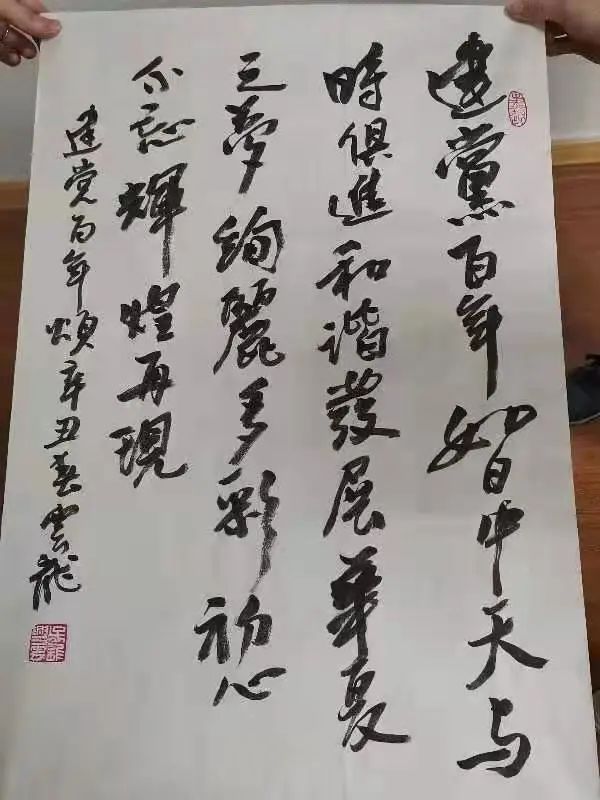 建黨百年如日中天与
時俱進和谐發展華夏
之夢絢麗多彩初心
不忘輝煌再現
建党百年頌辛丑春雲龍